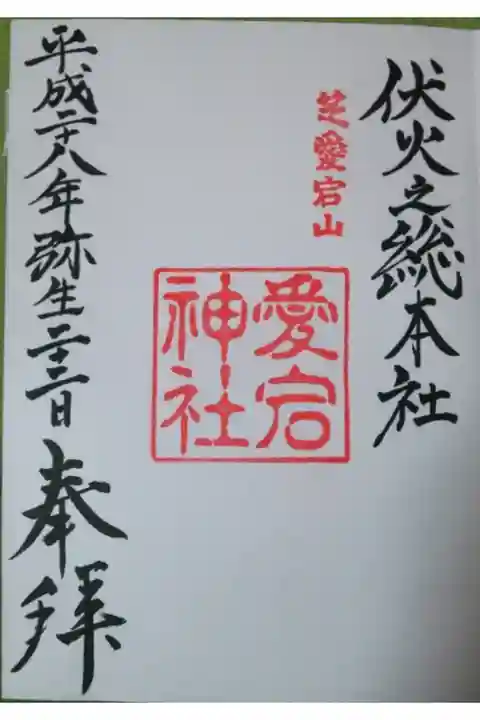 伏火之総本社
芝愛宕山
愛宕
神社
平成二十八年弥生二十二日
奉拝